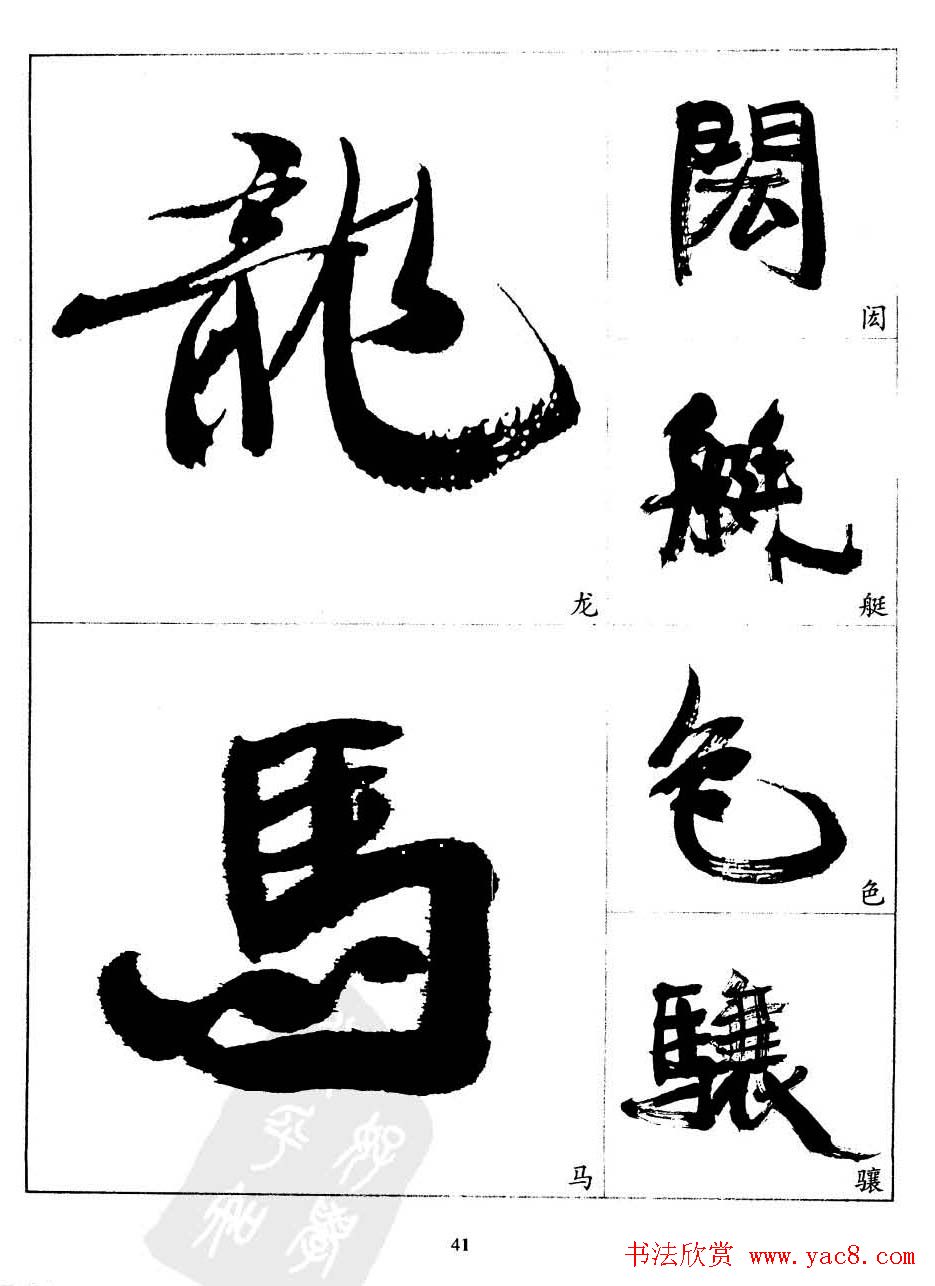 龍
龙
馬
马
閎
闳
艇
艇
色
色
驤
骧
41
书法欣赏 www.yac8.com